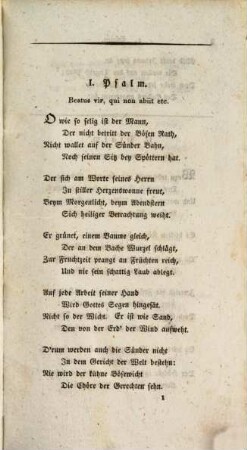 I. Psalm.
Beatus vir, qui non abiit etc.
O wie so selig ist der Mann,
Der nicht betritt der Bösen Rath,
Nicht wallet auf der Sünder Bahn,
Noch seinen Sitz bey Spöttern hat.
Der sich am Worte seines Herrn
In stiller Herzenswonne freut,
Beym Morgenlicht, beym Abendstern
Sich heiliger Betrachtung weiht.
Er grünet, einem Baume gleich,
Der an dem Bache Wurzel schlägt,
Zur Fruchtzeit prangt an Früchten reich,
Und nie sein schattig Laub ablegt.
Auf jede Arbeit seiner Hand
Wird Gottes Segen hingesät.
Nicht so der Wicht. Er ist wie Sand,
Den von der Erd' der Wind aufweht.
D'rum werden auch die Sünder nicht
In dem Gericht der Welt bestehn:
Nie wird der kühne Bösewicht
Die Chöre der Gerechten sehn.
1